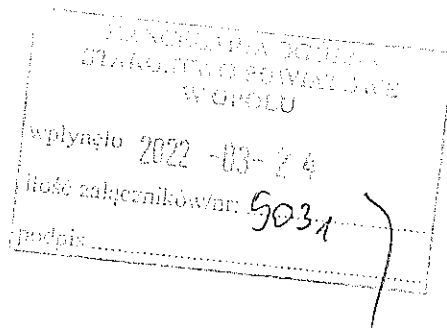 KANCELARIA OGÓLNA
STAROSTWO POWIATOWE
W OPOLU
wpłynęło 2022 -03- 24
ilość załączników/nr: 5031
podpis